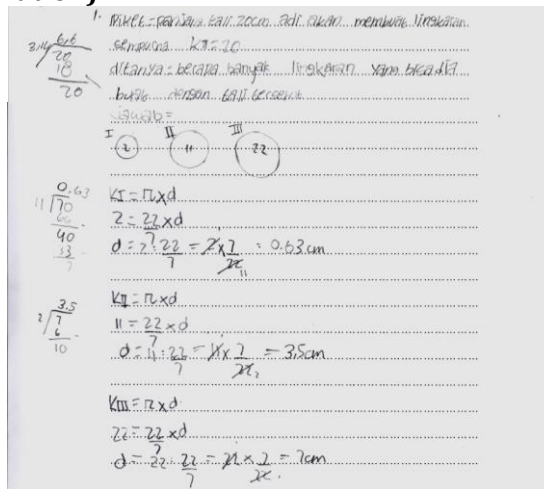 1. Diket = panjang tali 20cm adi akan membuat lingkaran
sempurna K = 20
ditanya = berapa banyak lingkaran yang bisa dia
buat dengan tali tersebut
Jawab =
I II III
2 11 22
KI = π x d
2 = 22/7 x d
d = 2 : 22/7 = 2 x 7/22 11 = 0.63 cm
KII = π x d
11 = 22/7 x d
d = 11 : 22/7 = 11 x 7/22 2 = 3,5cm
KIII = π x d
22 = 22/7 x d
d = 22 : 22/7 = 22 x 7/22 = 7cm
20
18
20
0.63
11 70
66
40
33
7
3.5
2 7
6
10